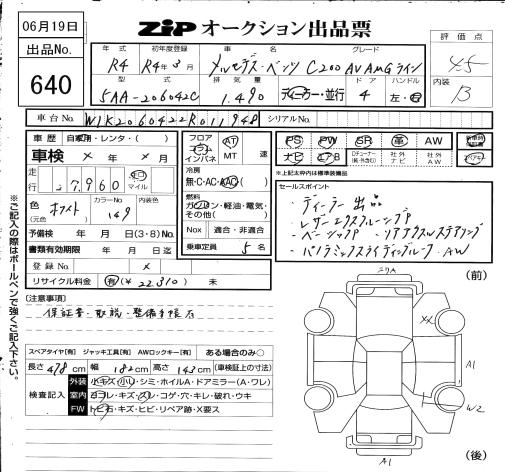 06月19日
出品No.
640
ZIP オークション出品票
評価点
4.5
内装
B
年式 初年度登録 車名 グレード
R4 R4年3月 メルセデス・ベンツ C200 AV AMGライン
型式 排気量 ドア ハンドル
5AA-206042C 1.490 ディーラー・並行 4 左・右
車台No. W1K2060422R011948 シリアルNo.
車歴 自家用・レンタ・( )
車検 × 年 × 月
走行 27,960 キロ マイル
色 (元色) ホワイト カラーNo. 149 内装色
予備検 年 月 日(3・8)No.
書類有効期限 年 月 日迄
登録No. ×
リサイクル料金 有(¥22,310) 未
フロア フラム インパネ AT MT 速
冷房 無・C・AC・AAC
燃料 ガソリン・軽油・電気・その他( )
Nox 適合・非適合
乗車定員 5名
PS PW SR 革 AW
ナビ エアB Dチューナー(純・外含む) 社外ナビ 社外AW
※上記太枠内は標準装備品
セールスポイント
・ディーラー出品
・レザーエクスクルーシブP
・ベーシックP ・リアアクスルステアリング
・パノラミックスライディングルーフ・AW
[注意事項]
保証書・取説・整備手帳石
スペアタイヤ[有] ジャッキ工具[有] AWロックキー[有] ある場合のみ○
長さ 478cm 幅 182cm 高さ 143cm (車検証上の寸法)
検査記入
外装 小キズ・小凹・シミ・ホイルA・ドアミラー(A・ワレ)
室内 ヨゴレ・キズ・スレ・コゲ・穴・キレ・破れ・ウキ
FW トビ石・キズ・ヒビ・リペア跡・X要ス
※ご記入の際はボールペンで強くご記入下さい。
(前)
XX
A1
W2
A1
(後)